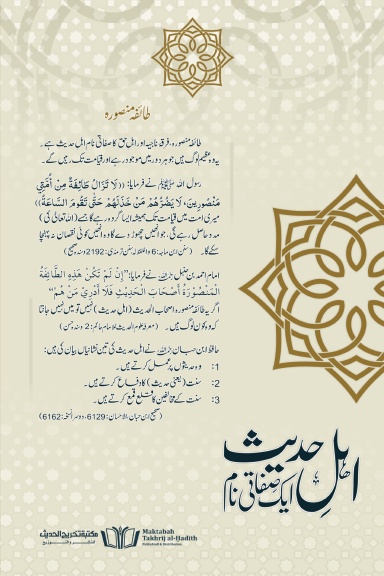 طائفہ منصورہ
طائفہ منصورہ، فرقہ ناجیہ اور اہل حق کا صفاتی نام اہل حدیث ہے۔
یہ وہ عظیم لوگ ہیں جو ہر دور میں موجود رہے اور قیامت تک رہیں گے۔
رسول اللہ ﷺ نے فرمایا: ((لَا تَزَالُ طَائِفَةٌ مِنْ أُمَّتِي
مَنْصُورِينَ، لَا يَضُرُّهُمْ مَنْ خَذَلَهُمْ حَتَّى تَقُومَ السَّاعَةُ))
میری امت میں قیامت تک ہمیشہ ایسا گروہ رہے گا جسے (اللہ تعالیٰ کی)
مدد حاصل رہے گی، جو انھیں چھوڑ دے گا وہ انھیں کوئی نقصان نہ پہنچا
سکے گا۔ (سنن ابن ماجہ: 6 واللفظ لہ، سنن ترمذی: 2192 وسندہ صحیح)
امام احمد بن حنبل رحمہ اللہ نے فرمایا: "إِنْ لَمْ تَكُنْ هَذِهِ الطَّائِفَةُ
الْمَنْصُورَةُ أَصْحَابَ الْحَدِيثِ فَلَا أَدْرِي مَنْ هُمْ"
اگر یہ طائفہ منصورہ اصحاب الحدیث (اہل حدیث) نہیں تو میں نہیں جانتا
کہ وہ کون لوگ ہیں۔ (معرفۃ علوم الحدیث للامام حاکم: 2 وسندہ حسن)
حافظ ابن حبان رحمہ اللہ نے اہل حدیث کی تین نشانیاں بیان کی ہیں:
1: وہ حدیثوں پر عمل کرتے ہیں۔
2: سنت (یعنی حدیث) کا دفاع کرتے ہیں۔
3: سنت کے مخالفین کا قلع قمع کرتے ہیں۔
(صحیح ابن حبان، الاحسان: 6129، دوسرا نسخہ: 6162)
اہلِ حدیث
ایک صفاتی نام
مكتبة تخريج الحديث
Maktabah
Takhrij al-Hadith